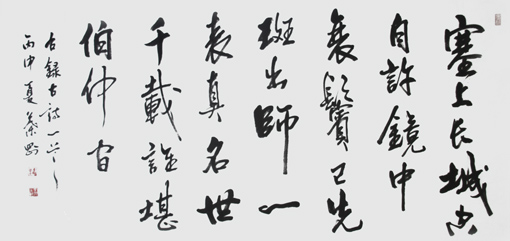 塞上长城空
自許鏡中
衰鬢已先
斑出師一
表真名世
千載誰堪
伯仲间
右錄古詩一首
丙申夏